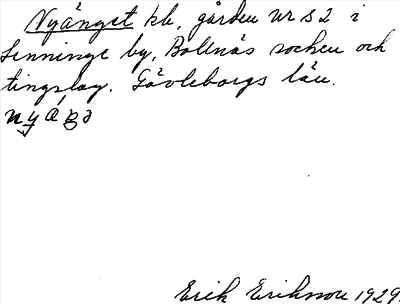 Nyänget hb, gården nr 52 i
Lenninge by, Bollnäs socken och
tingslag. Gävleborgs län.
Erik Eriksson 1929.